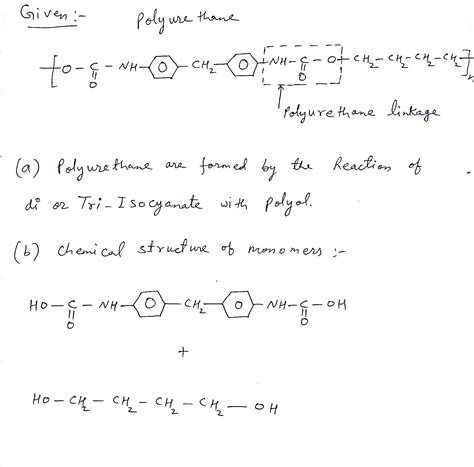 Given :- Polyurethane
[O - C - NH - O - CH2 - O - NH - C - O - CH2 - CH2 - CH2 - CH2]n
O O
Polyurethane linkage
(a) Polyurethane are formed by the Reaction of
di or Tri-Isocyanate with polyol.
(b) Chemical structure of monomers :-
HO - C - NH - O - CH2 - O - NH - C - OH
O O
+
HO - CH2 - CH2 - CH2 - CH2 - OH